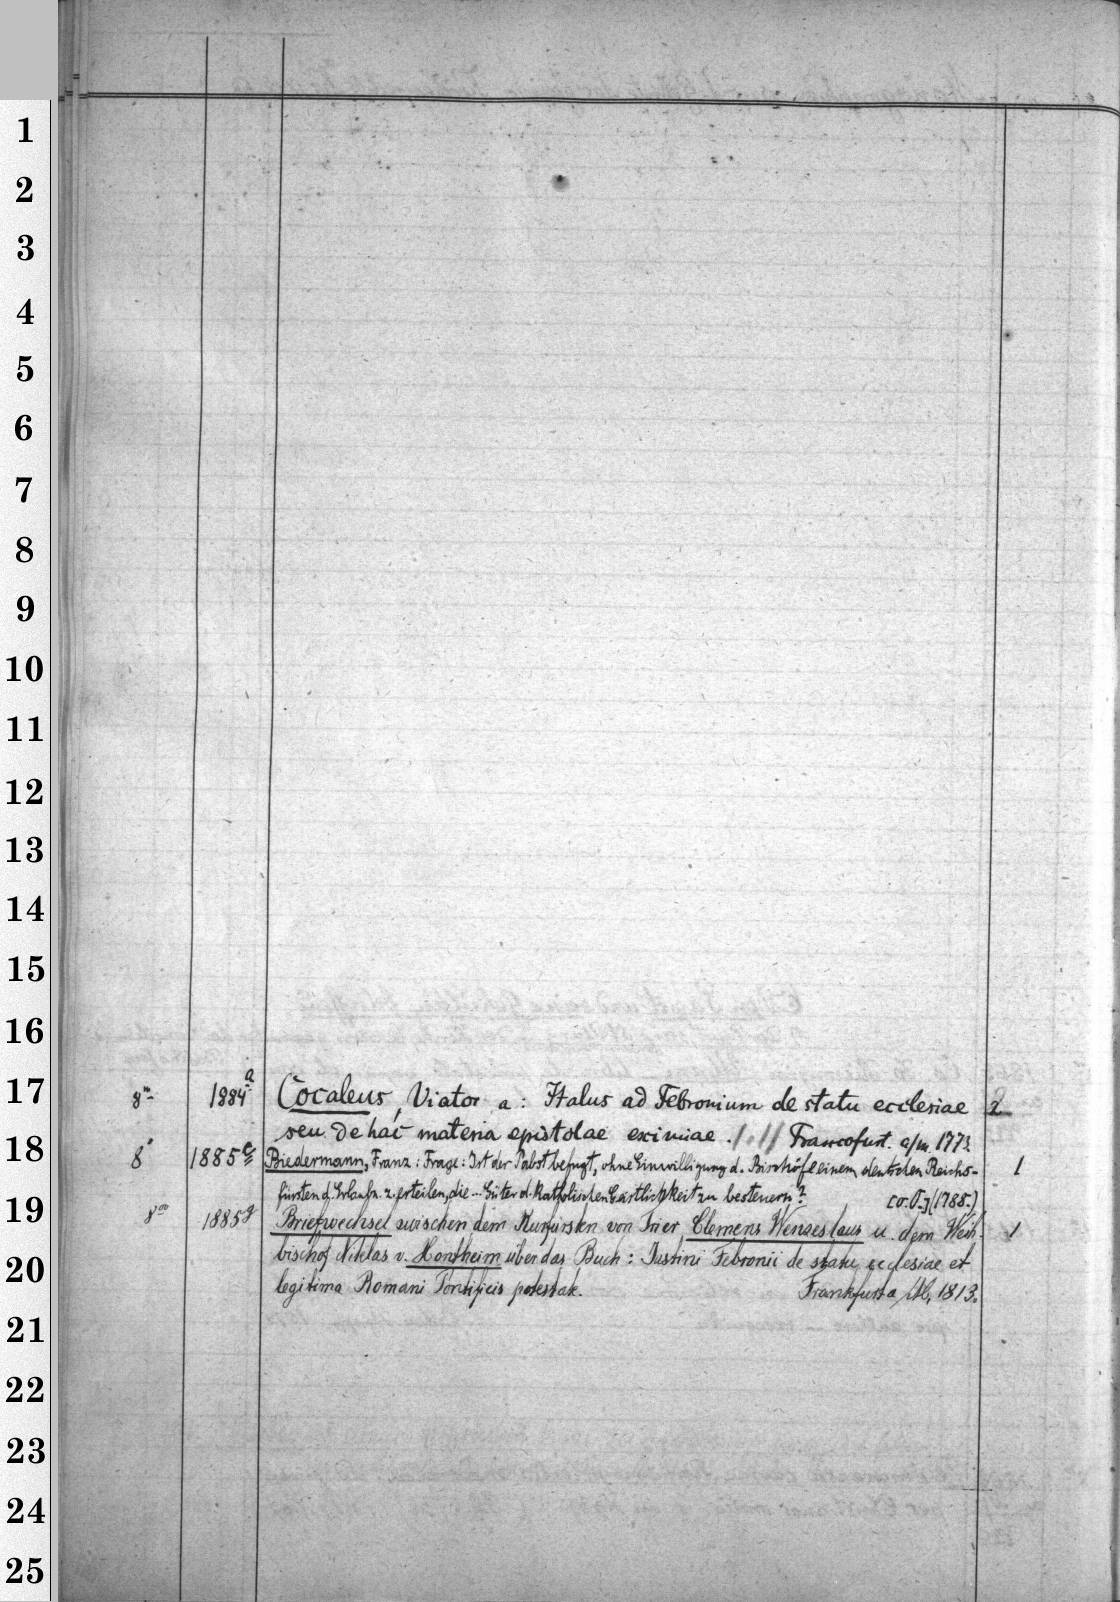 1
2
3
4
5
6
7
8
9
10
11
12
13
14
15
16
17
8° 1884a Cocaleus, Viator a: Italus ad Febronium de statu ecclesiae 2
18
seu de hac materia epistolae eximiae. Francofurt. a/m. 1773
8° 1885e Biedermann, Franz: Frage: Ist der Pabst befugt, ohne Einwilligung d. Bischöfe einem deutschen Reichs- 1
fürsten d. Erlaubn. z. erteilen, die Güter d. Katholischen Geistlichkeit zu besteuern? [o. O.] (1785.)
19
8vo 1885g Briefwechsel zwischen dem Kurfürsten von Trier Clemens Wenzeslaus u. dem Weih- 1
20
bischof Niklas v. Hontheim über das Buch: Justini Febronii de statu ecclesiae et
legitima Romani Pontificis potestate. Frankfurt a/M, 1813.
21
22
23
24
25